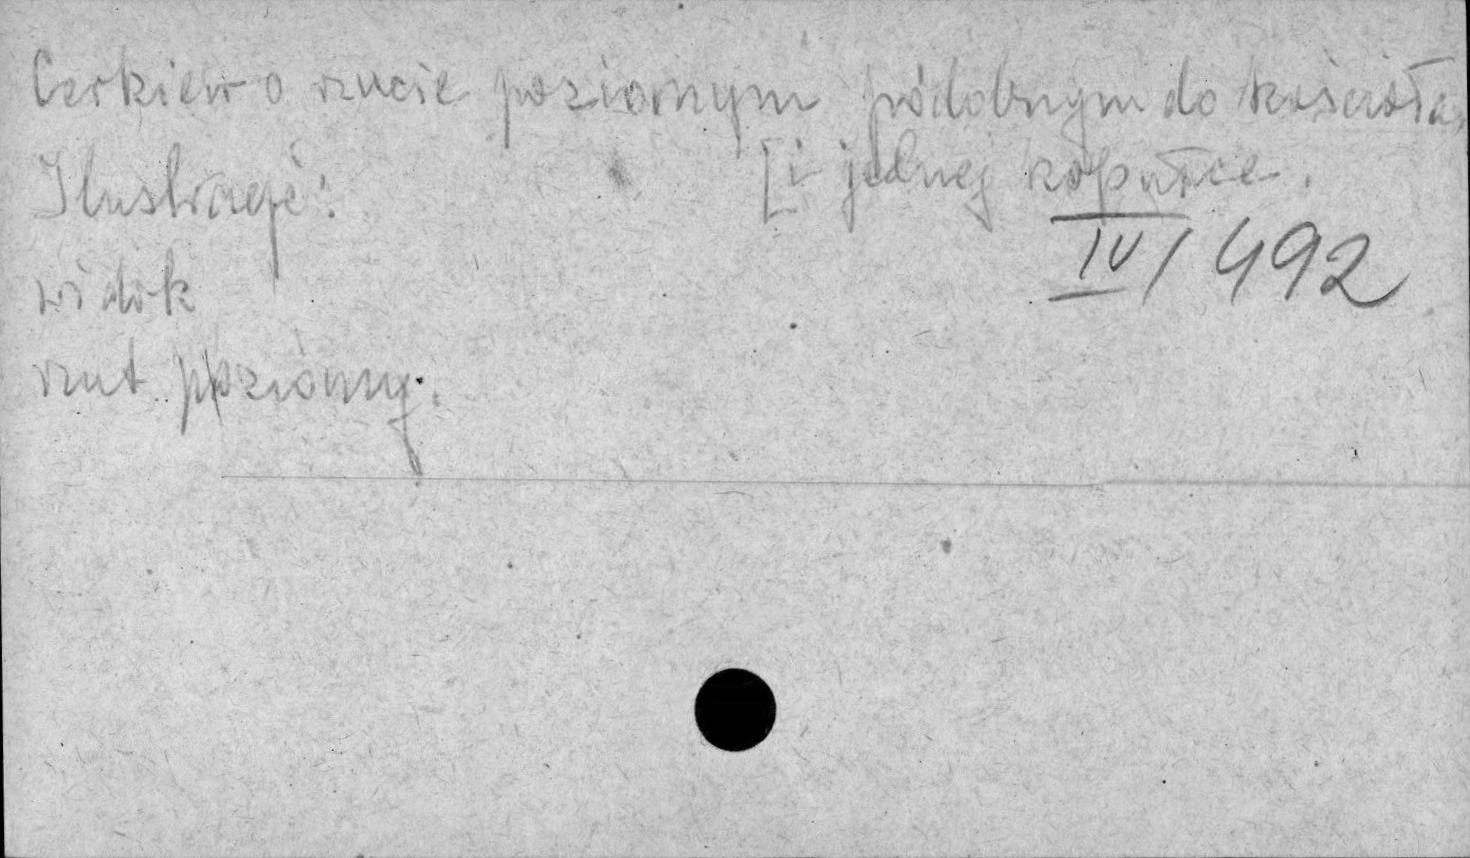 Cerkiew o rzucie poziomym podobnym do kościoła
[i jednej kopułce.
Ilustracje:
IV/492
widok
rzut poziomy.